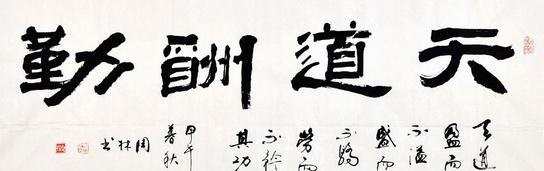 天道酬勤
天道
盈而
不溢
盛而
不驕
勞而
不矜
其功
甲午
暮秋
周林书